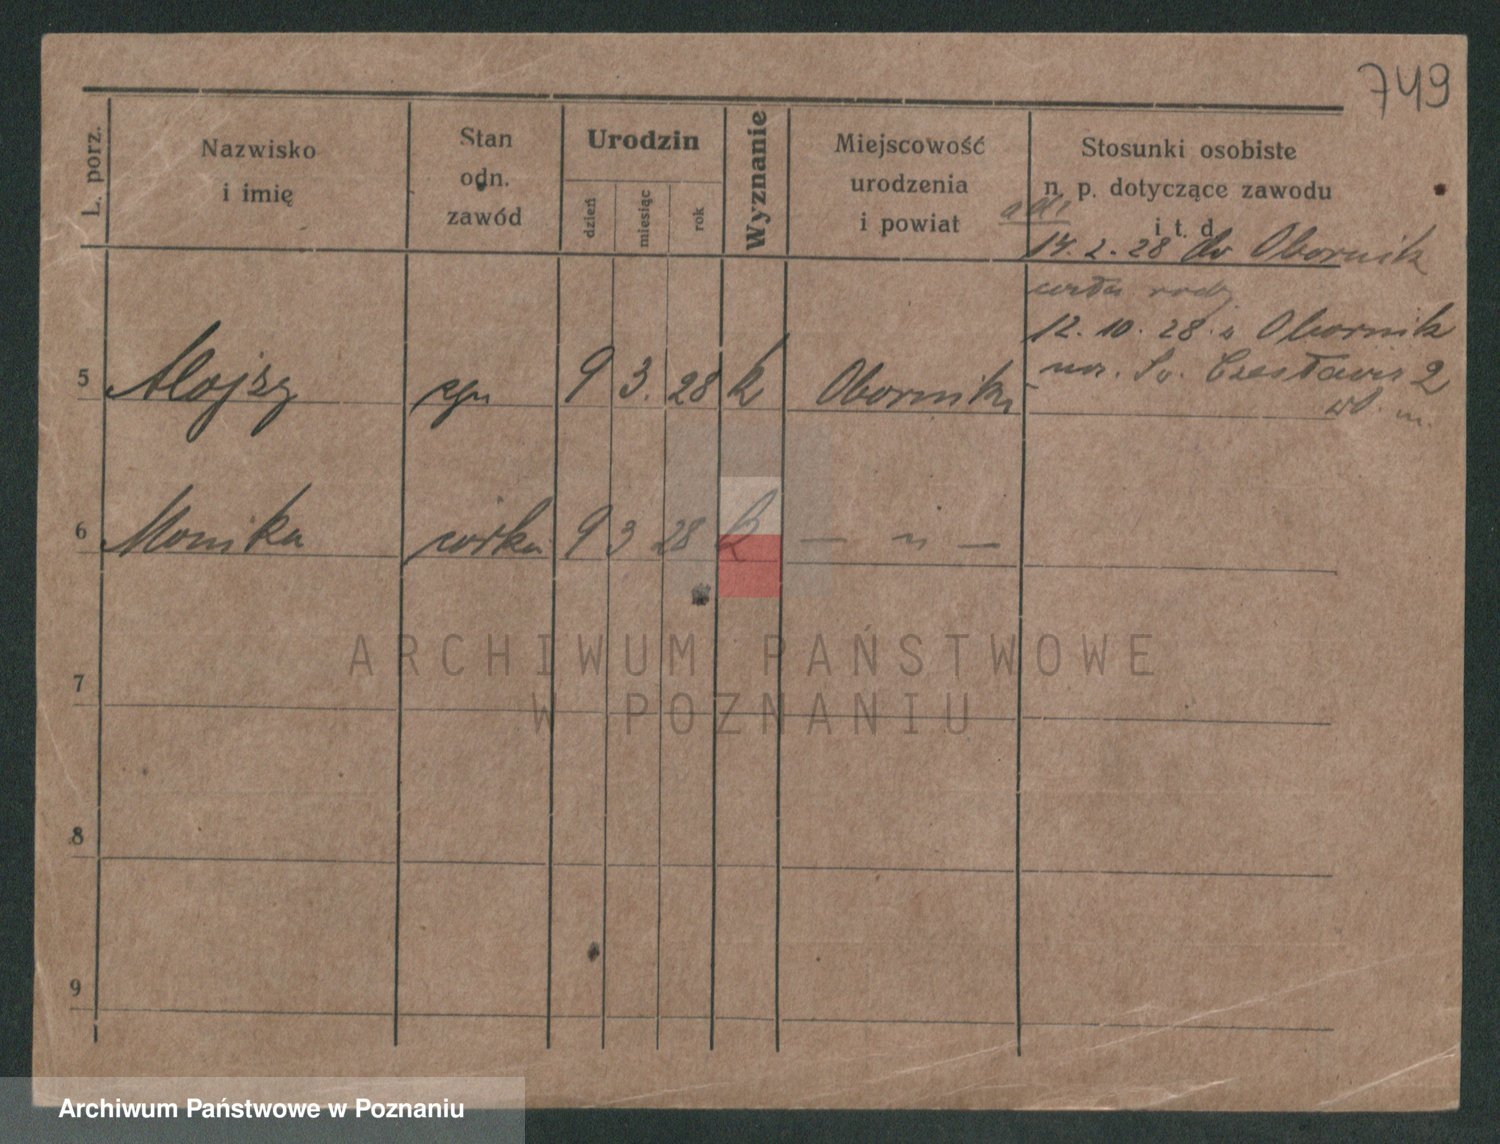 749
L. porz.
Nazwisko
i imię
Stan
odn.
zawód
Urodzin
dzień
miesiąc
rok
Wyznanie
Miejscowość
urodzenia
i powiat
Stosunki osobiste
n. p. dotyczące zawodu
i t. d.
14. 2. 28 do Obornik
cała rodz.
12. 10. 28 z Obornik
Św. Czesława 2
5 Alojzy syn 9 3. 28 k Oborniki
6 Monika córka 9 3 28 k — " —
7
8
9
ARCHIWUM PAŃSTWOWE
W POZNANIU
Archiwum Państwowe w Poznaniu